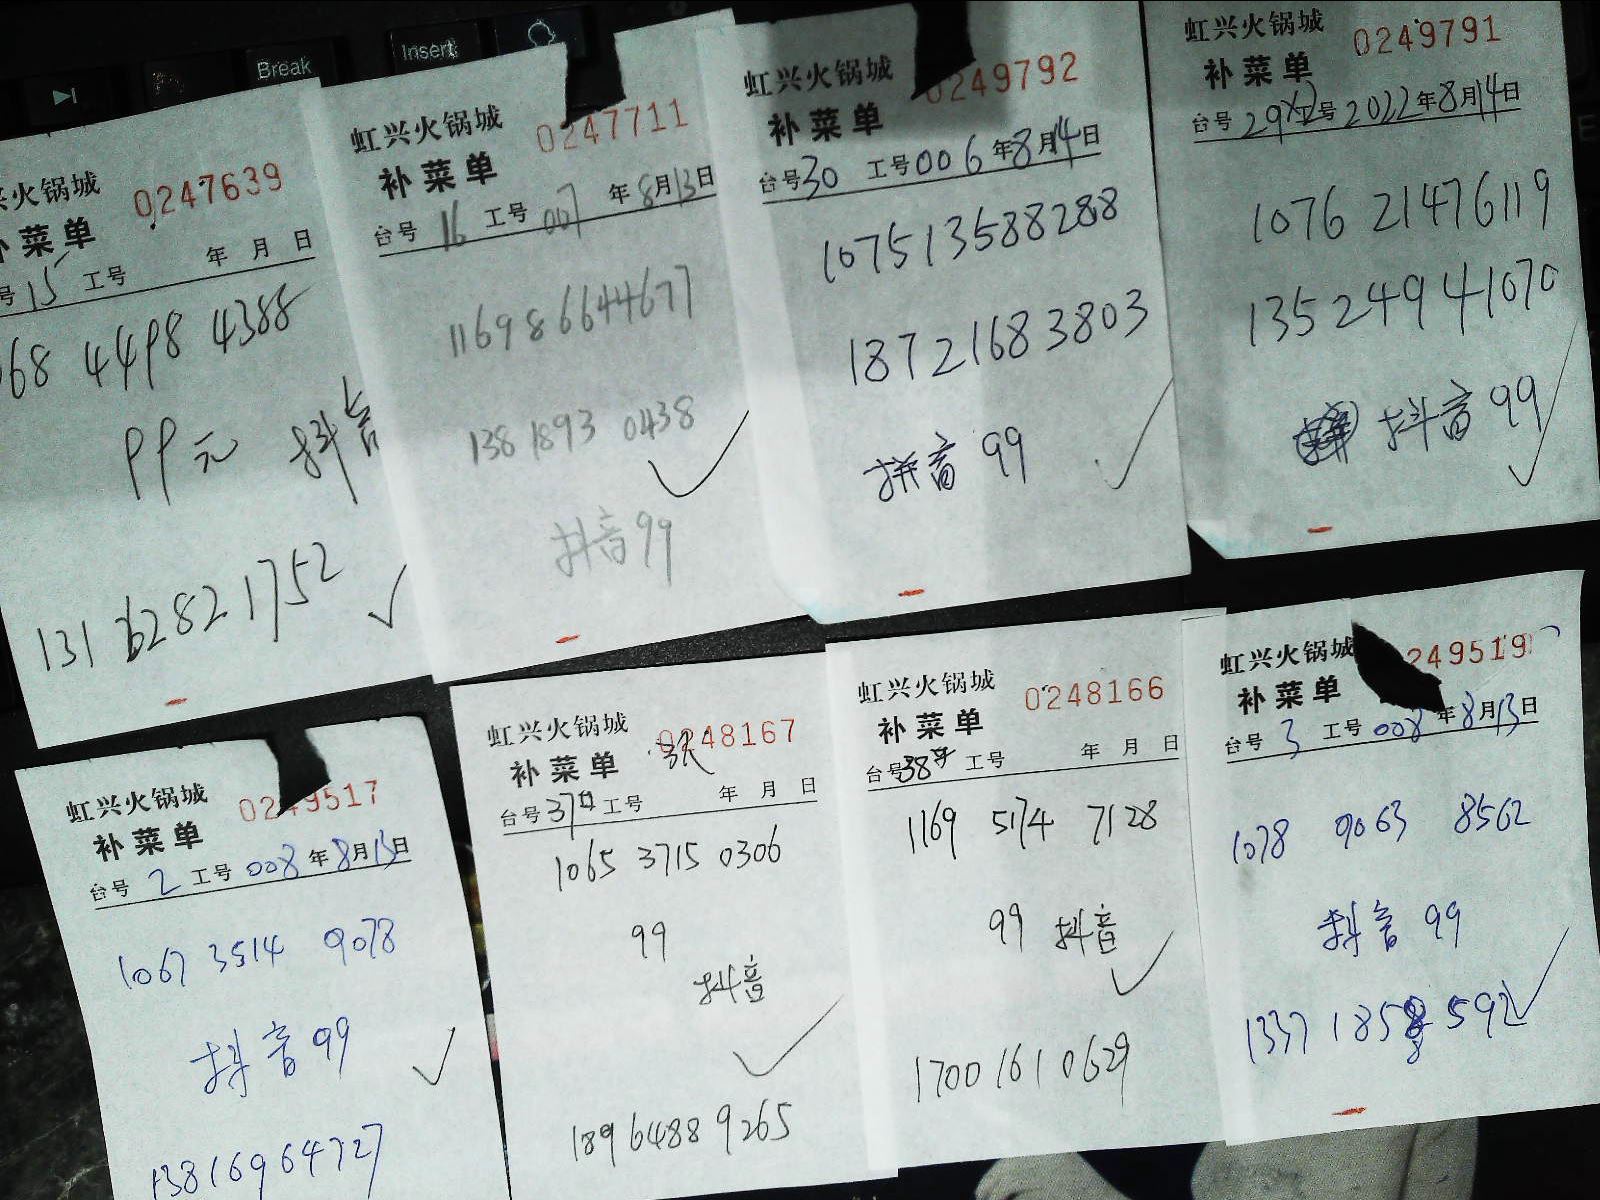 Break
Insert
兴火锅城
0247639
菜单
号15 工号 年 月 日
068 4498 4388
99元 抖音
13162821752
虹兴火锅城
0247711
补菜单
台号16 工号007 年8月13日
116986644677
138 1893 0438
抖音99
虹兴火锅城
0249792
补菜单
台号30 工号006年8月14日
107513588288
18721683803
拼音 99
虹兴火锅城
0249791
补菜单
台号29 工号2022年8月14日
1076 21476119
13524941070
抖音 99
虹兴火锅城
0249517
补菜单
台号 2 工号 008 年8月13日
1067 3514 9078
抖音99
13816964727
虹兴火锅城
0248167
补菜单
台号37 工号 年 月 日
1065 3715 0306
99
抖音
18964889265
虹兴火锅城
0248166
补菜单
台号38 工号 年 月 日
1169 5174 7128
99 抖音
17001610629
虹兴火锅城
249519
补菜单
台号 3 工号 008 年8月13日
1078 9063 8562
抖音 99
1337 1858 592